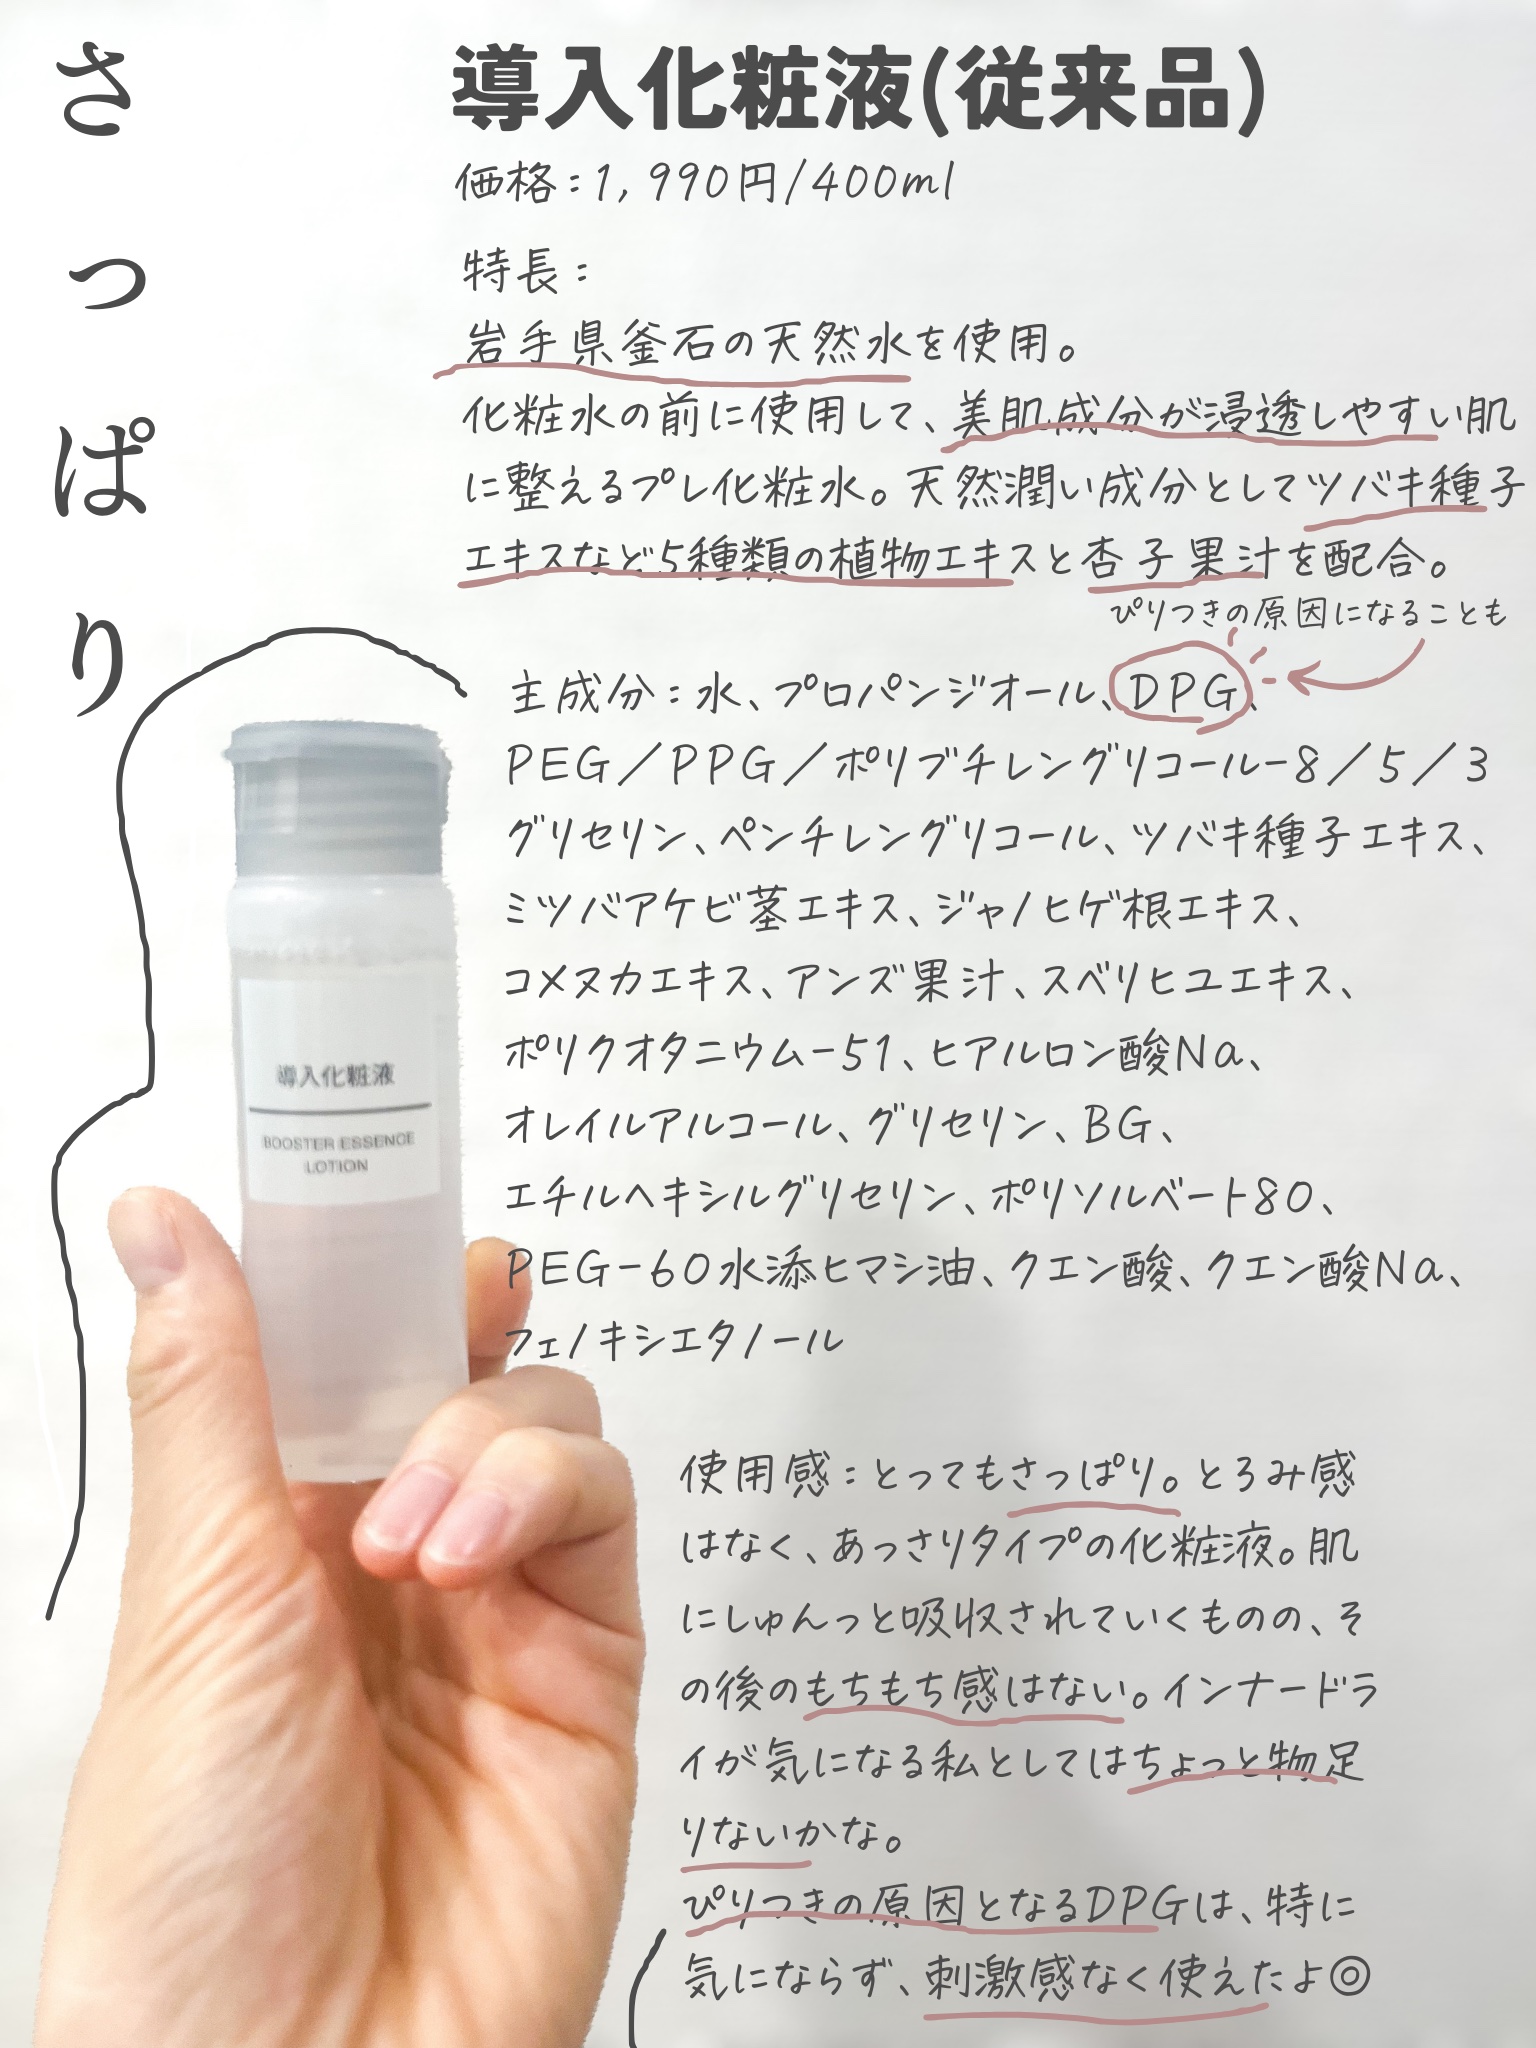 さっぱり
導入化粧液(従来品)
価格:1,990円/400ml
特長:
岩手県釜石の天然水を使用。
化粧水の前に使用して、美肌成分が浸透しやすい肌
に整えるプレ化粧水。天然潤い成分としてツバキ種子
エキスなど5種類の植物エキスと杏子果汁を配合。
ぴりつきの原因になることも
主成分:水、プロパンジオール、DPG、
PEG/PPG/ポリブチレングリコール-8/5/3
グリセリン、ペンチレングリコール、ツバキ種子エキス、
ミツバアケビ茎エキス、ジャノヒゲ根エキス、
コメヌカエキス、アンズ果汁、スベリヒユエキス、
ポリクオタニウム-51、ヒアルロン酸Na、
オレイルアルコール、グリセリン、BG、
エチルヘキシルグリセリン、ポリソルベート80、
PEG-60水添ヒマシ油、クエン酸、クエン酸Na、
フェノキシエタノール
導入化粧液
BOOSTER ESSENCE
LOTION
使用感:とってもさっぱり。とろみ感
はなく、あっさりタイプの化粧液。肌
にしゅんっと吸収されていくものの、そ
の後のもちもち感はない。インナードラ
イが気になる私としてはちょっと物足
りないかな。
ぴりつきの原因となるDPGは、特に
気にならず、刺激感なく使えたよ◎